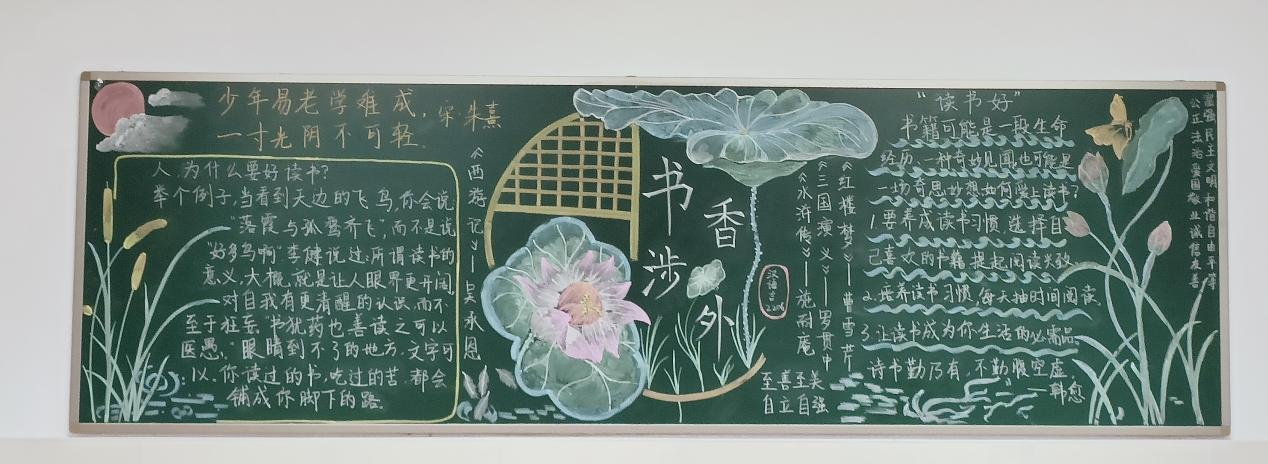 少年易老学难成，
一寸光阴不可轻.
宋·朱熹
人为什么要好读书?
举个例子,当看到天边的飞鸟,你会说
"落霞与孤鹜齐飞",而不是说
"好多鸟啊".李健说过:所谓读书的
意义,大概就是让人眼界更开阔,
对自我有更清醒的认识,而不
至于狂妄."书犹药也善读之可以
医愚."眼睛到不了的地方,文字可
以.你读过的书,吃过的苦.都会
铺成你脚下的路.
《西游记》——吴承恩
书香
涉外
汉语言
至善至美
自立自强
《水浒传》——施耐庵
《三国演义》——罗贯中
《红楼梦》——曹雪芹
"读书好"
书籍可能是一段生命
经历,一种奇妙见闻,也可能是
一场奇思妙想.如何爱上读书?
1.要养成读书习惯.选择自
己喜欢的书籍.提起阅读兴致
2.培养读书习惯.每天抽时间阅读.
3.让读书成为你生活的必需品
诗书勤乃有,不勤腹空虚
韩愈
富强民主文明和谐自由平等
公正法治爱国敬业诚信友善